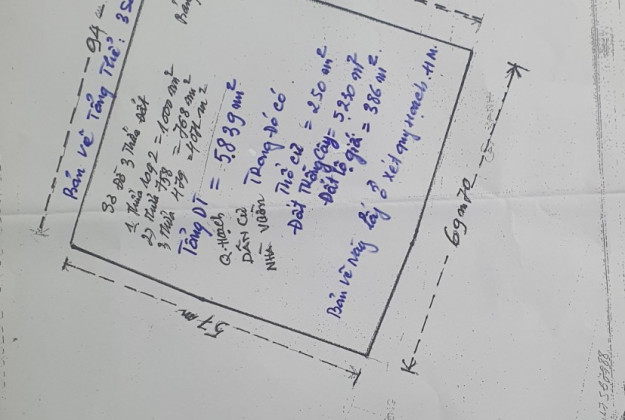 94
Bản vẽ Tổng Thể: 3
Sơ đồ 3 Thửa Đất
1 Thửa 102 = 1.000 m²
2) Thửa 758 = 768 m²
3 Thửa 409 = 4071 m²
Tổng DT = 5.839 m²
Q. Hoạch
DÂN CƯ
NHÀ VƯỜN
Trong Đó có
Đất Thổ cư = 250 m²
Đất Trồng Cây = 5230 m²
Đất lộ giá = 386 m²
Bản vẽ Này lấy ở xét quy Hoạch. H M.
57 m
69m70